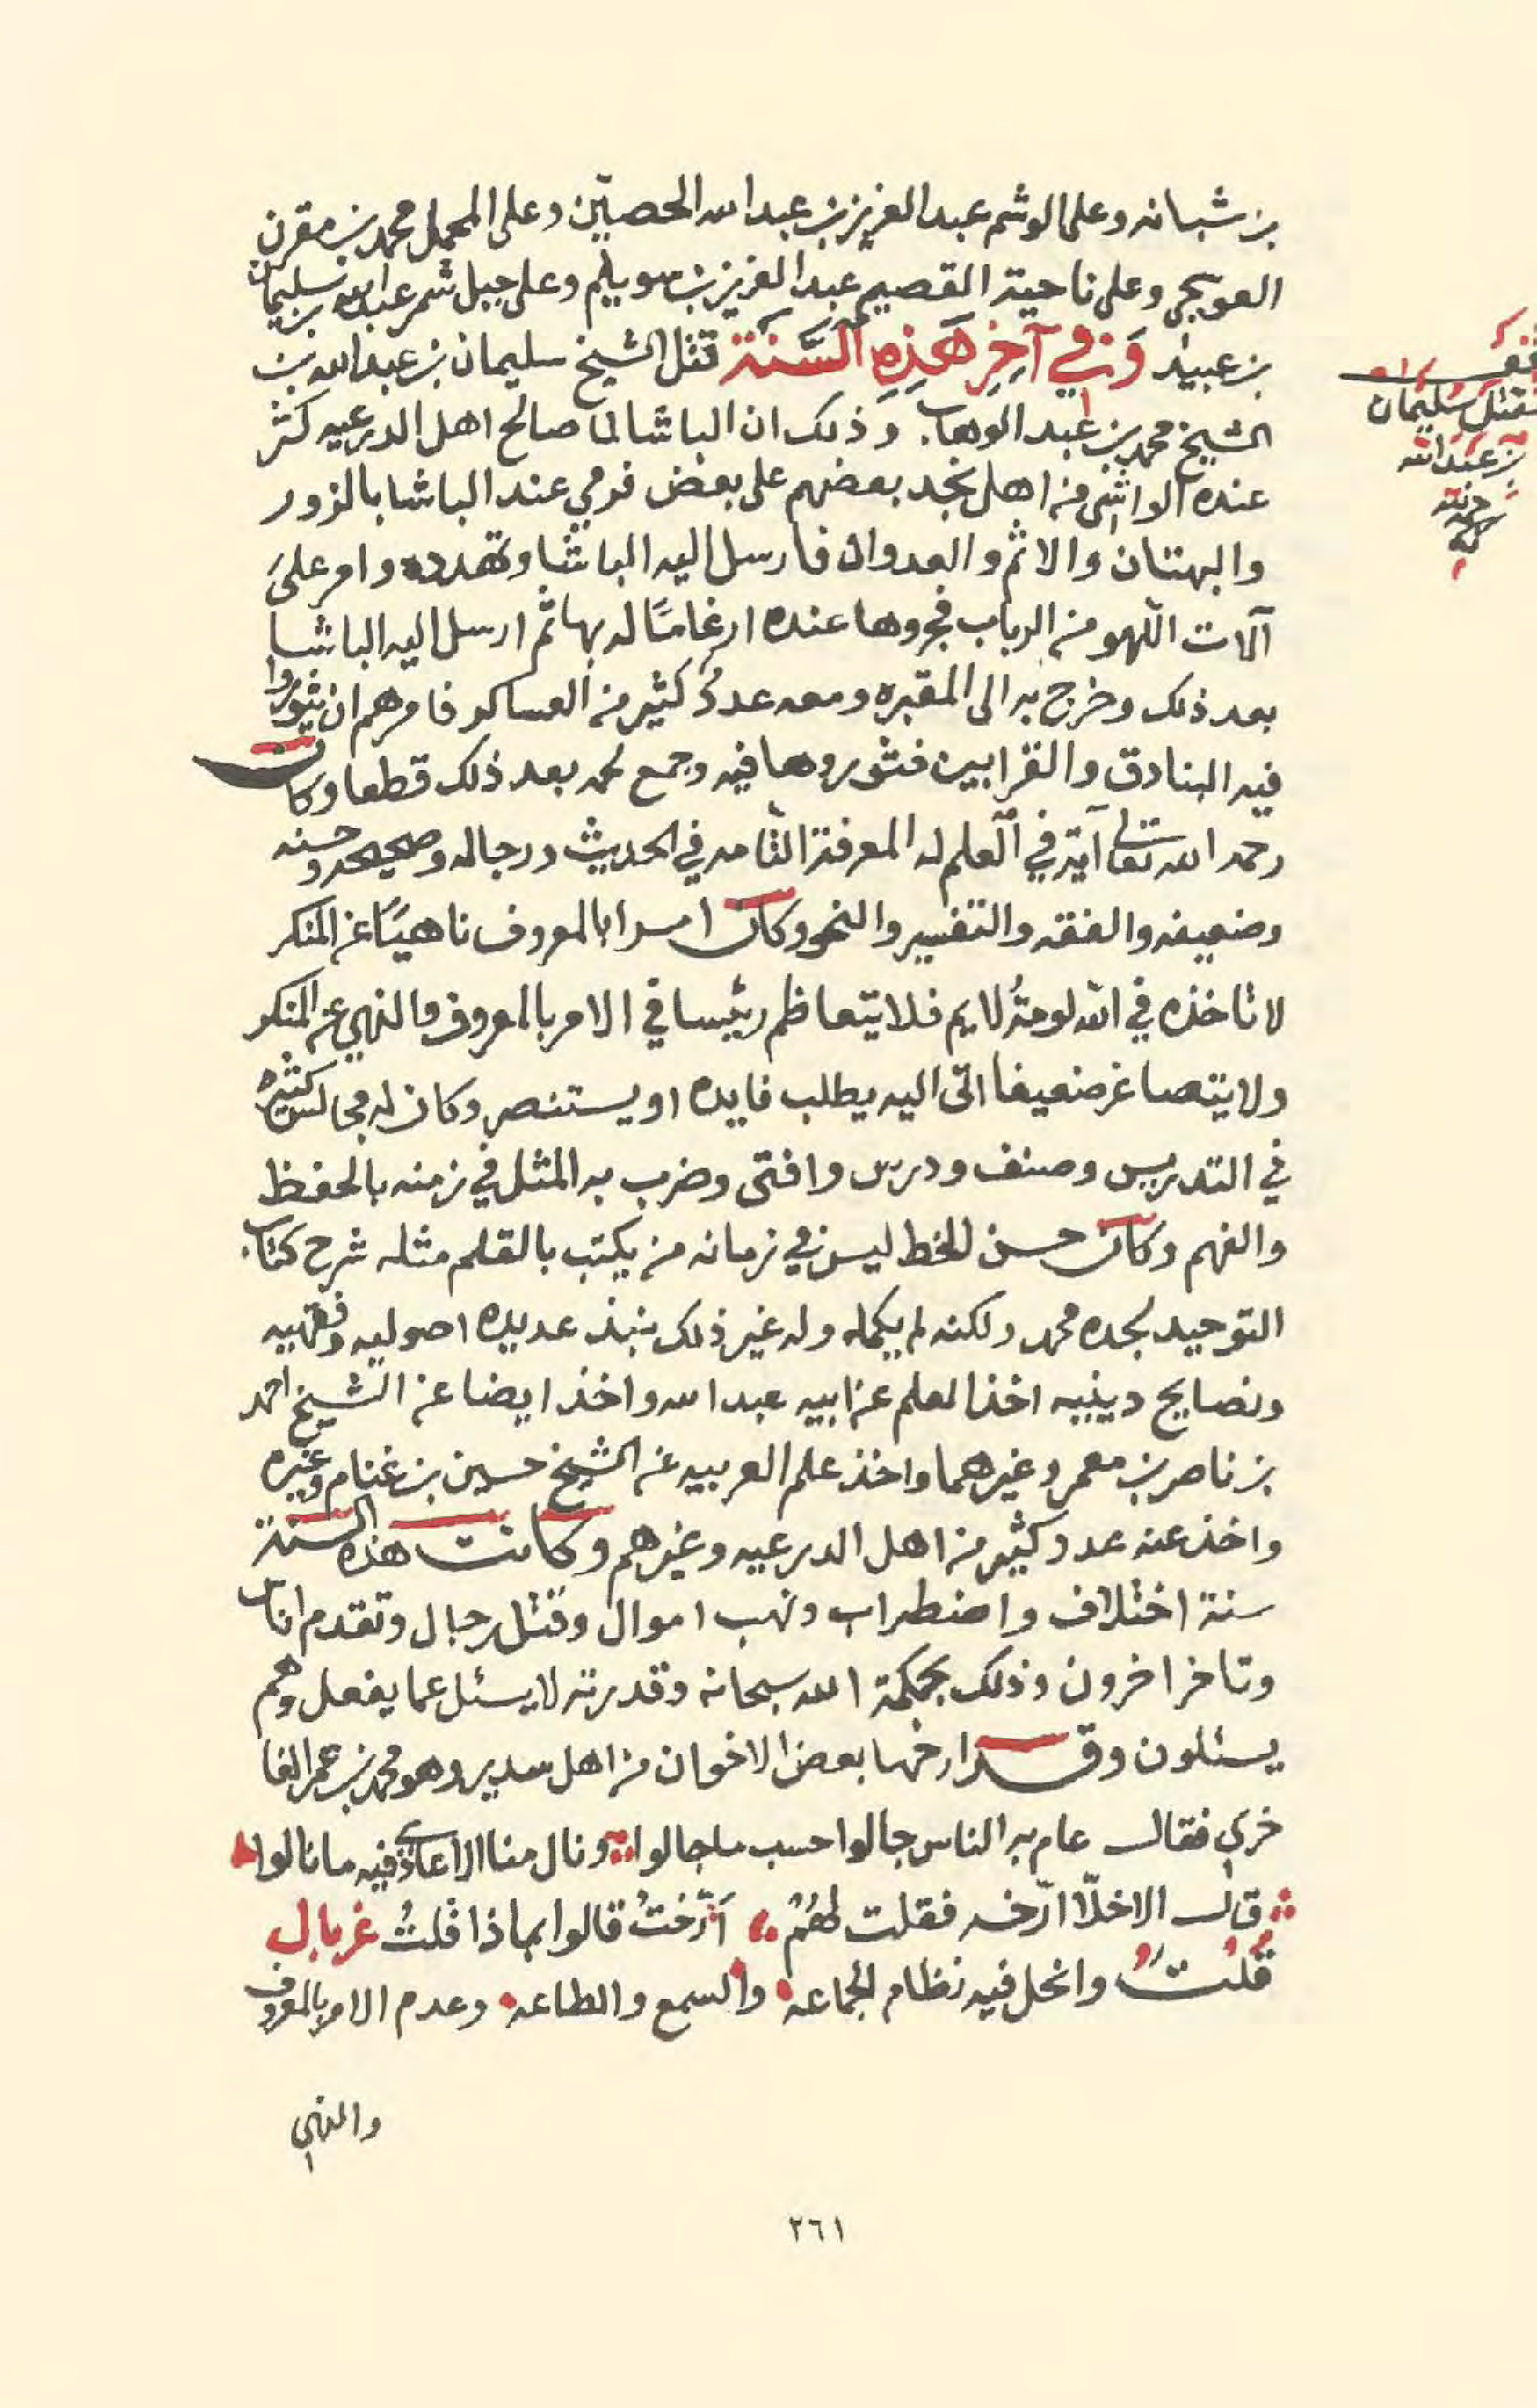 بن شبانه وعلى الوشم عبد العزيز بن عبد الله الحصيّن وعلى المحمل محمد بن مقرن
العويجي وعلى ناحية القصيم عبد العزيز بن سويلم وعلى جبل شمر عبد الله بن سليمان
بن عبيد وَفي آخِرِ هَذِهِ السَّنَة قتل الشيخ سليمان بن عبد الله بن
الشيخ محمد بن عبد الوهاب وذلك ان الباشا لما صالح اهل الدرعيه كثر
عنده الواشي من اهل نجد بعضهم على بعض فرمي عند الباشا بالزور
والبهتان والاثم والعدوان فارسل اليه الباشا وتهدده وامر على
آلات اللهو من الرباب فجروها عنده ارغامًا له بها ثم ارسل اليه الباشا
بعد ذلك وخرج به الى المقبره ومعه عددٌ كثير من العساكر فامرهم ان يثوروا
فيه البنادق والقرابين فثوروها فيه وجمع لحمه بعد ذلك قطعا وكان
رحمه الله تعالى آية في العلم له المعرفة التامه في الحديث ورجاله وصحيحه وحسنه
وضعيفه والفقه والتفسير والنحو وكان امرا بالمعروف ناهيًا عن المنكر
لا تاخذه في الله لومةُ لايم فلا يتعاظم رئيسا في الامر بالمعروف والنهي عن المنكر
ولا يتصاغر ضعيفا اتى اليه يطلب فايده او يستنصر وكان له مجالس كثيره
في التدريس وصنف ودرس وافتى وضرب به المثل في زمنه بالحفظ
والفهم وكان حسن الخط ليس في زمانه من يكتب بالقلم مثله شرح كتاب
التوحيد لجده محمد ولكنه لم يكمله وله غير ذلك نبذ عديده اصوليه وفقهيه
ونصايح دينيه اخذ العلم عن ابيه عبد الله واخذ ايضا عن الشيخ احمد
بن ناصر بن معمر وغيرهما واخذ علم العربيه عن الشيخ حسين بن غنام وغيره
واخذ عنه عدد كثير من اهل الدرعيه وغيرهم وكانت هذه السنة
سنة اختلاف واضطراب ونهب اموال وقتل رجال وتقدم اناس
وتاخر اخرون وذلك بحكمة الله سبحانه وقدرته لا يسئل عما يفعل وهم
يسئلون وقد ارخها بعض الاخوان من اهل سدير وهو محمد بن عمر الفا
خري فقال عام به الناس جالوا حسب ما جالوا ونال منا الاعادي فيه ما نالوا
قال الاخلّا ارّخه فقلت لهُمُ أرّختُ قالوا بماذا قلتُ غربال
قلت وانحل فيه نظام الجماعه والسمع والطاعه وعدم الامر بالمعروف
والنهي
٢٦١
مقتل سليمان
بن عبد الله